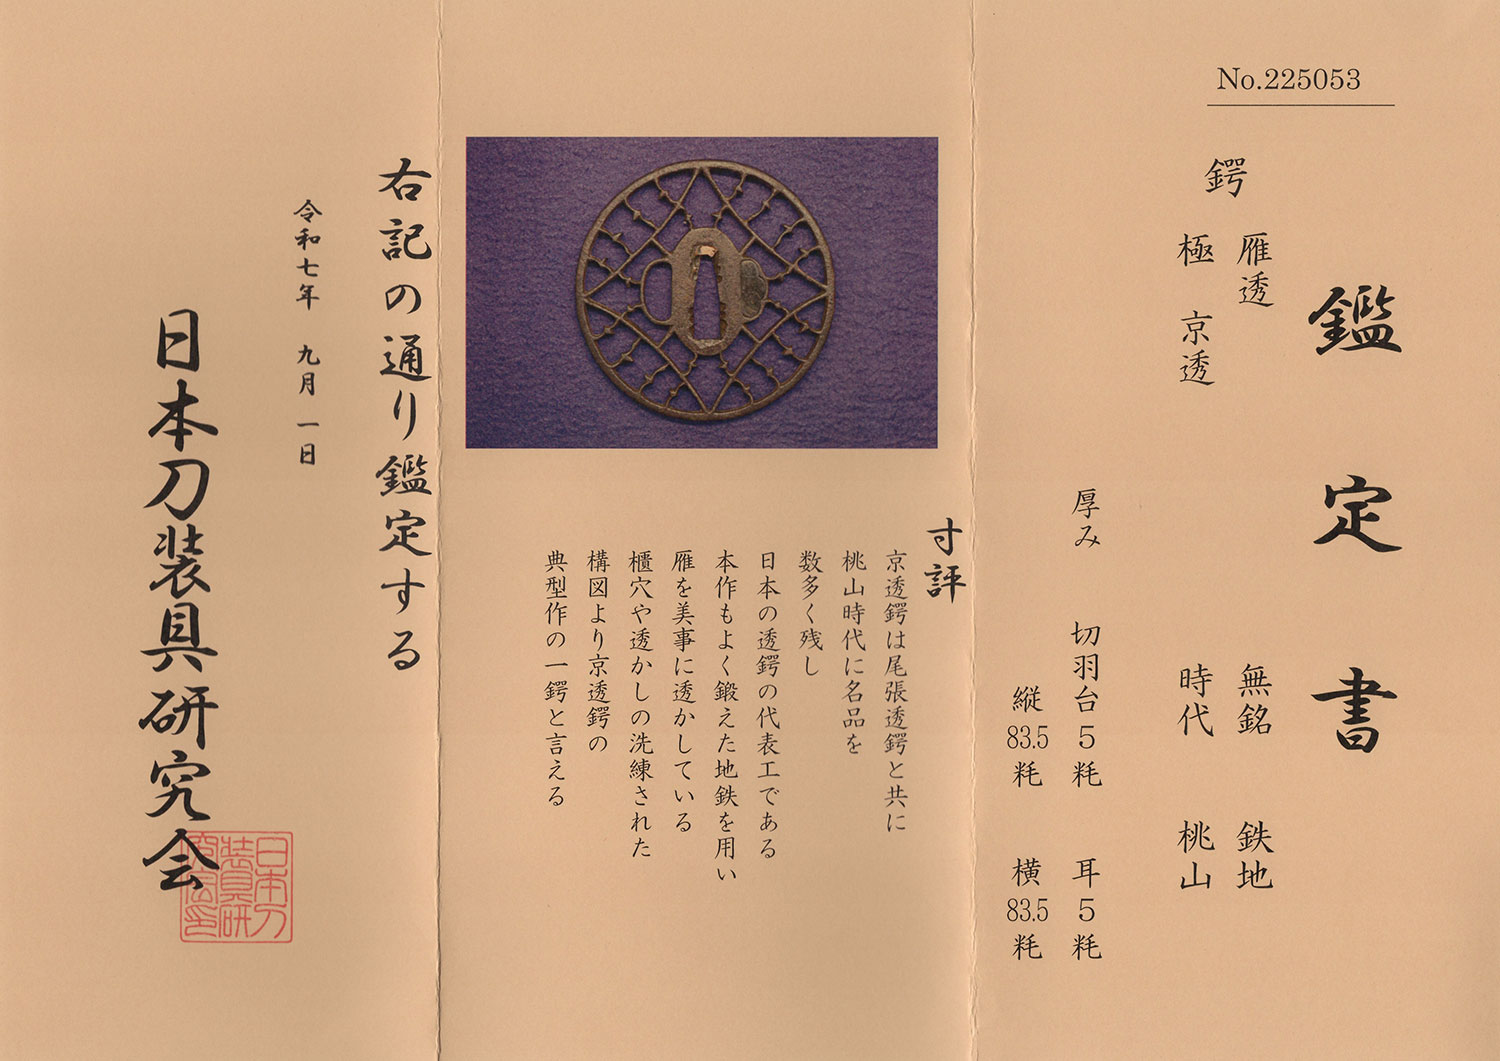 No.225053
鑑定書
鍔
雁透 無銘 鉄地
極 京透 時代 桃山
厚み 切羽台5粍 耳5粍
縦83.5粍 横83.5粍
寸評
京透鍔は尾張透鍔と共に
桃山時代に名品を
数多く残し
日本の透鍔の代表工である
本作もよく鍛えた地鉄を用い
雁を美事に透かしている
櫃穴や透かしの洗練された
構図より京透鍔の
典型作の一鍔と言える
右記の通り鑑定する
令和七年 九月一日
日本刀装具研究会
日本刀
装具研
究会印